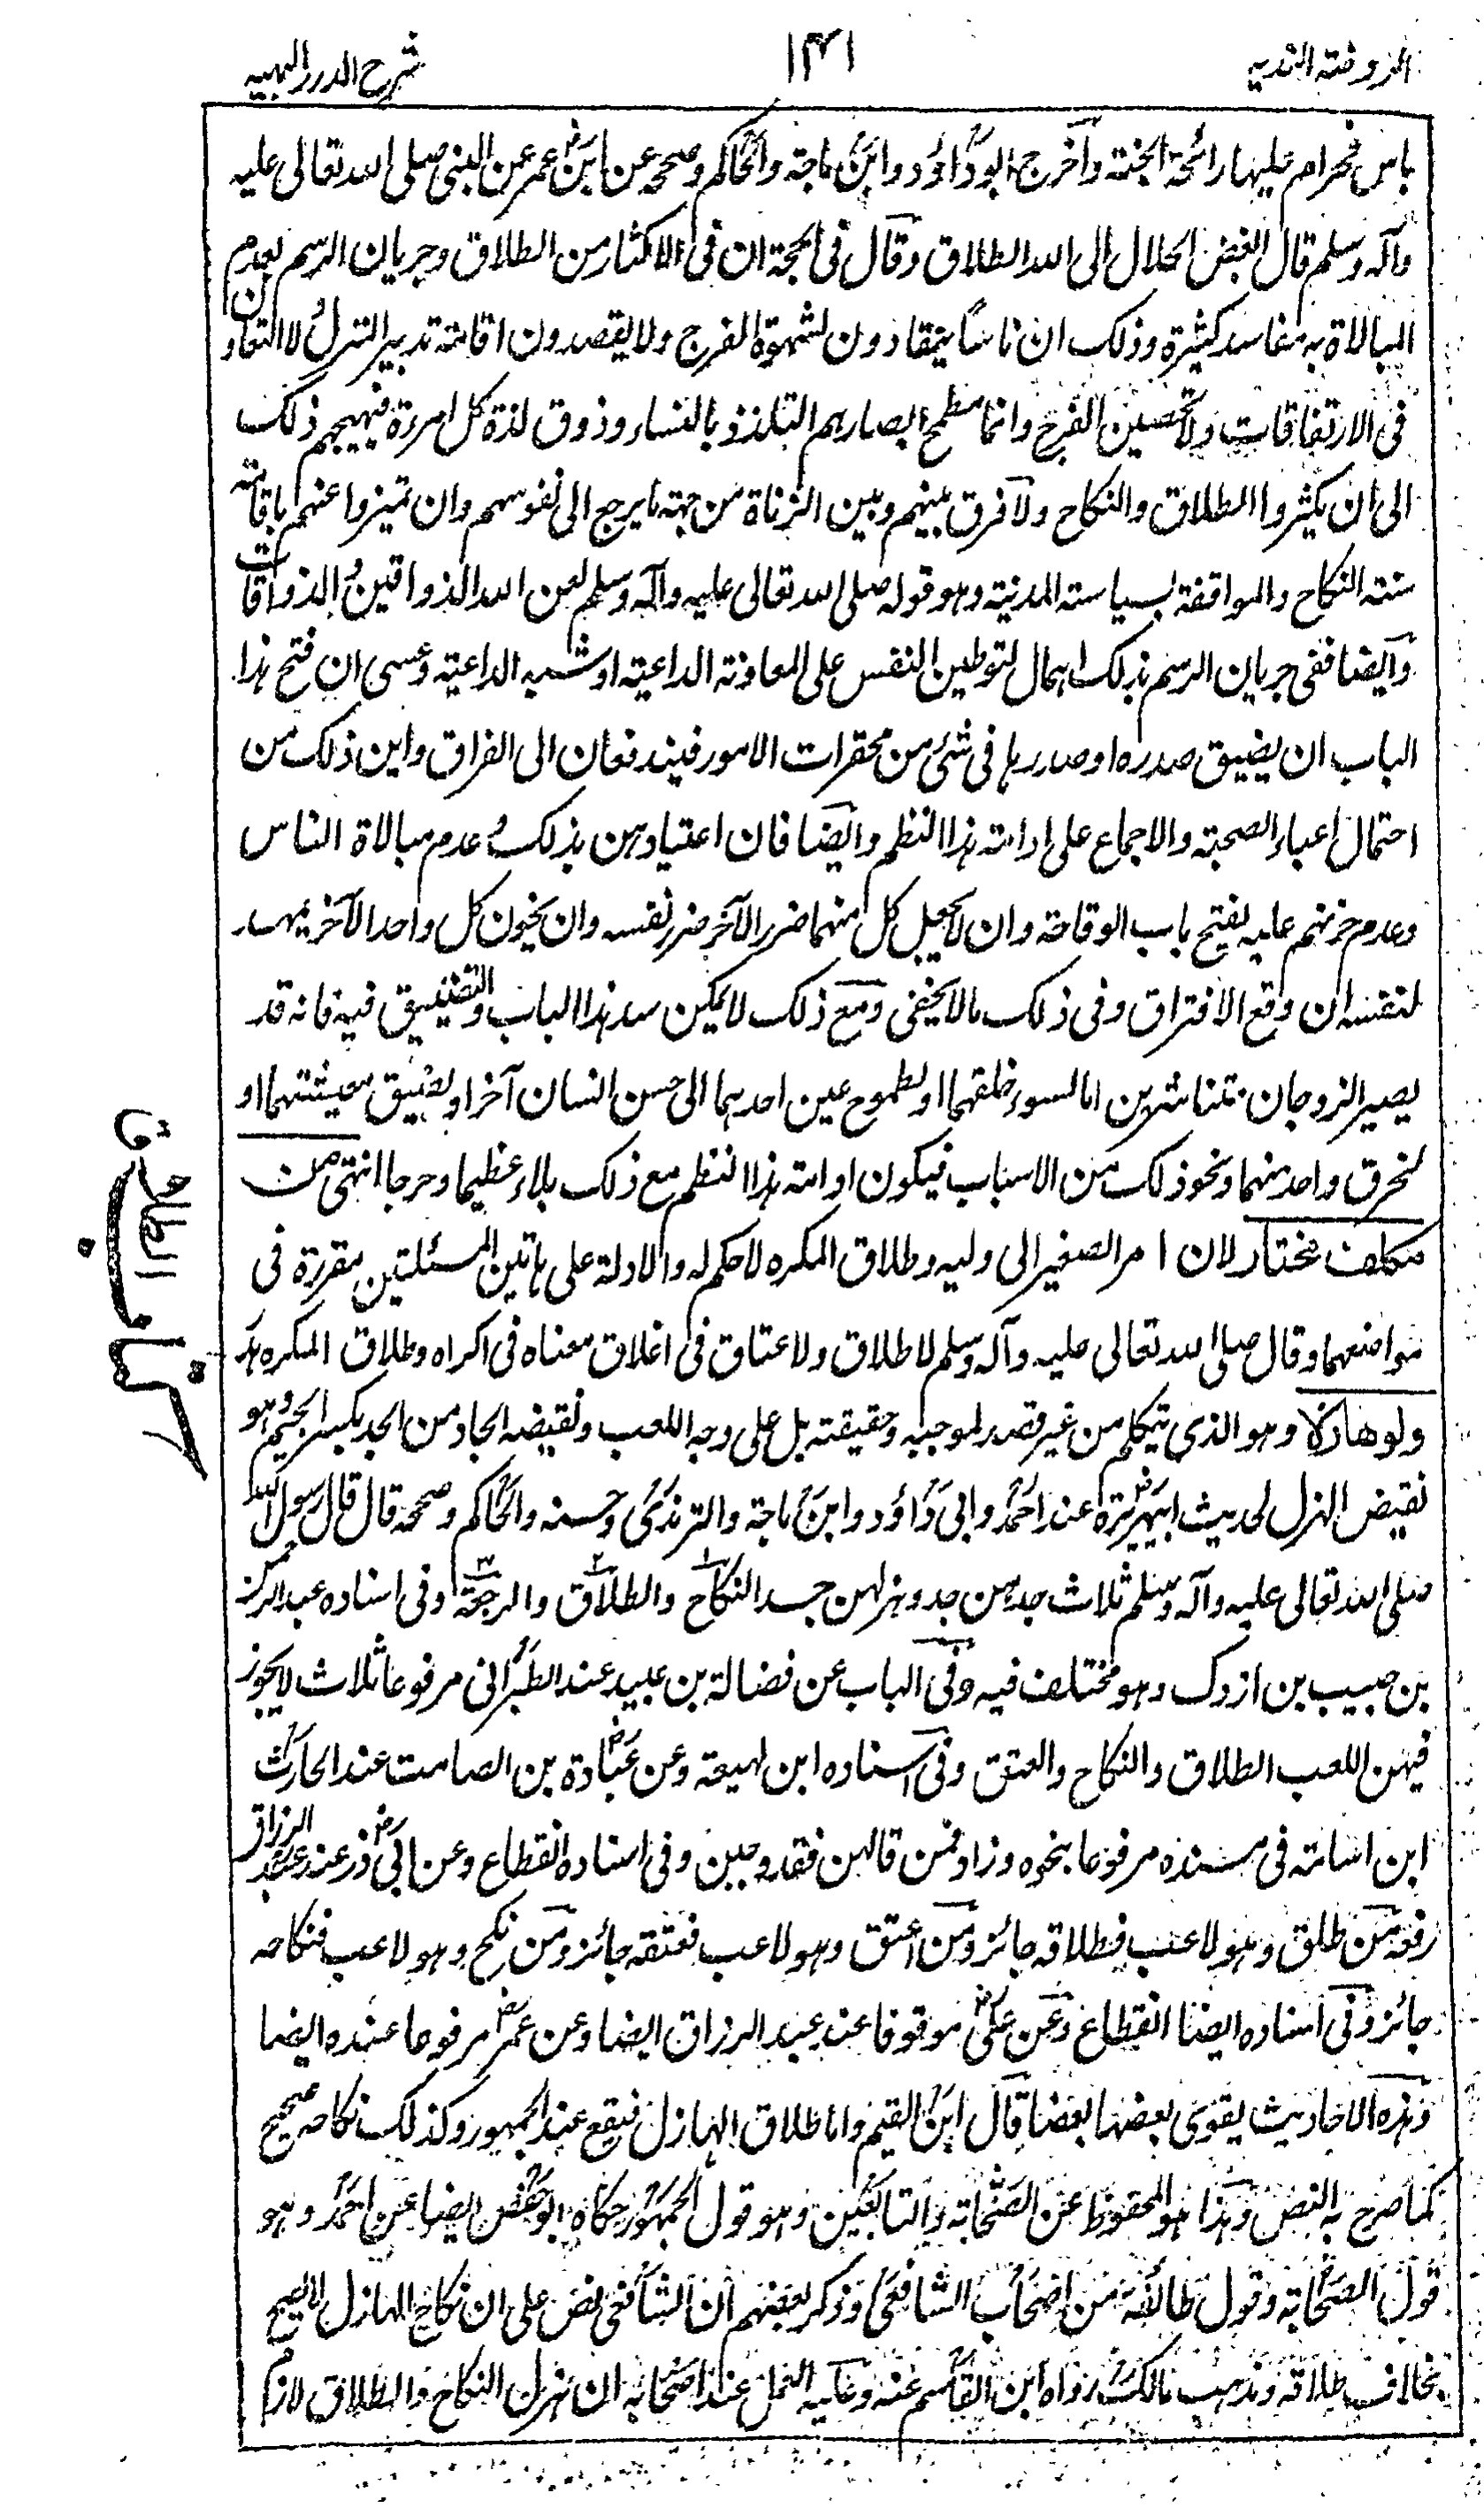 الروضة الندية
١٣١
شرح الدرر البهية
باس فحرام عليها رائحة الجنة وأخرج ابو داؤد وابن ماجة والحاكم وصححه عن ابن عمر عن النبى صلى الله تعالى عليه
وآله وسلم قال ابغض الحلال الى الله الطلاق وقال فى الحجة ان فى الاكثار من الطلاق وجريان الرسم بعدم
المبالاة به مفاسد كثيرة وذلك ان ناسًا ينقادون لشهوة الفرج ولا يقصدون اقامة تدبير المنزل ولا التعاون
فى الارتفاقات ولا تحصين الفرج وانما مطمح ابصارهم التلذذ بالنساء وذوق لذة كل امرءة فيهيجهم ذلك
الى ان يكثروا الطلاق والنكاح ولا فرق بينهم وبين الزناة من جهة ما يرجع الى نفوسهم وان تميزوا عنهم باقامة
سنة النكاح والموافقة لسياسة المدنية وهو قوله صلى الله تعالى عليه وآله وسلم لعن الله الذواقين والذواقات
وايضا ففى جريان الرسم بذلك اهمال لتوطين النفس على المعاونة الداعية او شبه الداعية وعسى ان فتح هذا
الباب ان يضيق صدره او صدرها فى شئ من محقرات الامور فيندفعان الى الفراق واين ذلك من
احتمال اعباء الصحبة والاجماع على ادامة هذا النظم وايضا فان اعتيادهن بذلك وعدم مبالاة الناس
وعدم حزنهم عليه يفتح باب الوقاحة وان لا يجعل كل منهما ضرر الآخر ضرر نفسه وان يخون كل واحد الآخر يمهد
لنفسه ان وقع الافتراق وفى ذلك ما لا يخفى ومع ذلك لا يمكن سد هذا الباب والتضييق فيه فانه قد
يصير الزوجان متناشزين اما لسوء خلقهما او لطموح عين احدهما الى حسن انسان آخر او لضيق معيشتهما او
لخرق واحد منهما ونحو ذلك من الاسباب فيكون ادامة هذا النظم مع ذلك بلاء عظيما وحرجا انتهى من
مكلف مختار لان امر الصغير الى وليه وطلاق المكره لا حكم له والادلة على هاتين المسئلتين مقررة فى
مواضعهما وقال صلى الله تعالى عليه وآله وسلم لا طلاق ولا عتاق فى اغلاق معناه فى اكراه وطلاق المكره هدر
ولو هازلا وهو الذى يتكلم من غير قصد لموجبه وحقيقته بل على وجه اللعب ونقيضه الجاد من الجد بكسر الجيم وهو
نقيض الهزل لحديث ابيهريرة عند احمد وابى داؤد وابن ماجة والترمذى وحسنه والحاكم وصححه قال قال رسول الله
صلى الله تعالى عليه وآله وسلم ثلاث جدهن جد وهزلهن جد النكاح والطلاق والرجعة وفى اسناده عبد الرحمن
بن حبيب بن ازدك وهو مختلف فيه وفى الباب عن فضالة بن عبيد عند الطبرانى مرفوعا ثلاث لا يجوز
فيهن اللعب الطلاق والنكاح والعتق وفى اسناده ابن لهيعة وعن عبادة بن الصامت عند الحارث
ابن اسامة فى مسنده مرفوعا بنحوه وزاد فمن قالهن فقد وجبن وفى اسناده انقطاع وعن ابى ذر عند عبد الرزاق
رفعه من طلق وهو لاعب فطلاقه جائز ومن اعتق وهو لاعب فعتقه جائز ومن نكح وهو لاعب فنكاحه
جائز وفى اسناده ايضا انقطاع وعن على موقوفا عند عبد الرزاق ايضا وعن عمر مرفوعا عنده ايضا
وهذه الاحاديث يقوى بعضها بعضا قال ابن القيم واما طلاق الهازل فيقع عند الجمهور وكذلك نكاحه صحيح
كما صرح به النص وهذا هو المحفوظ عن الصحابة والتابعين وهو قول الجمهور حكاه ابو حفص ايضا عن احمد وهو
قول الصحابة وقول طائفة من اصحاب الشافعى وذكر بعضهم ان الشافعى نص على ان نكاح الهازل لا يصح
بخلاف طلاقه ومذهب مالك رواه ابن القاسم عنه وعليه العمل عند اصحابه ان هزل النكاح والطلاق لازم
كتاب الطلاق